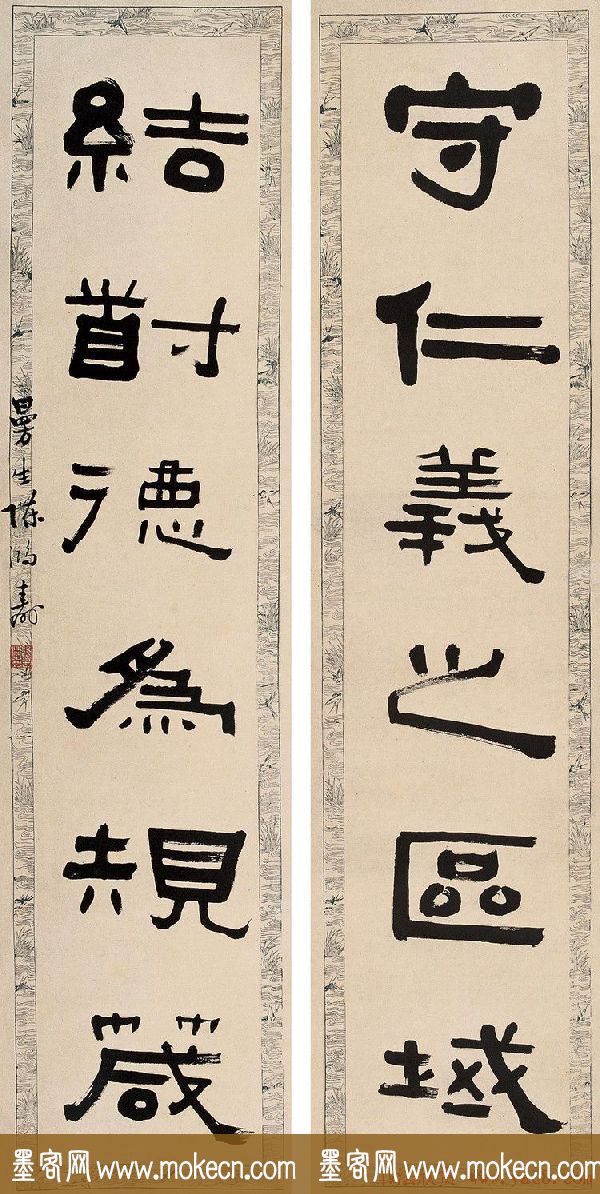 守仁義之區域
結道德為規箴
曼生陳鴻壽
墨客网 www.mokecn.com
墨客网 www.mokecn.com